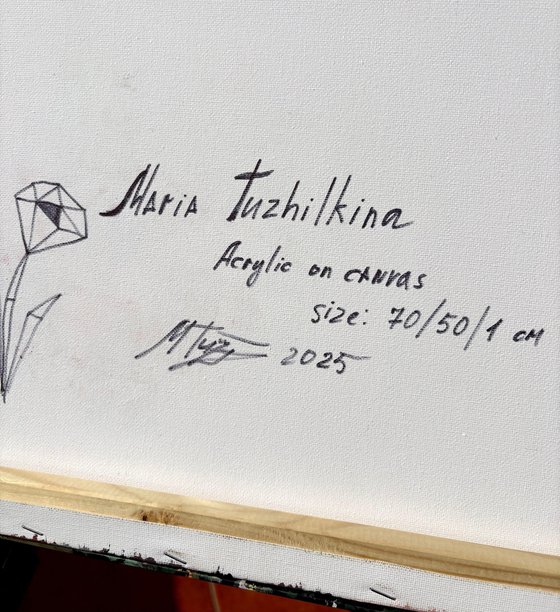 Maria Tuzhilkina
Acrylic on canvas
size: 70/50/1 см
МТуз 2025